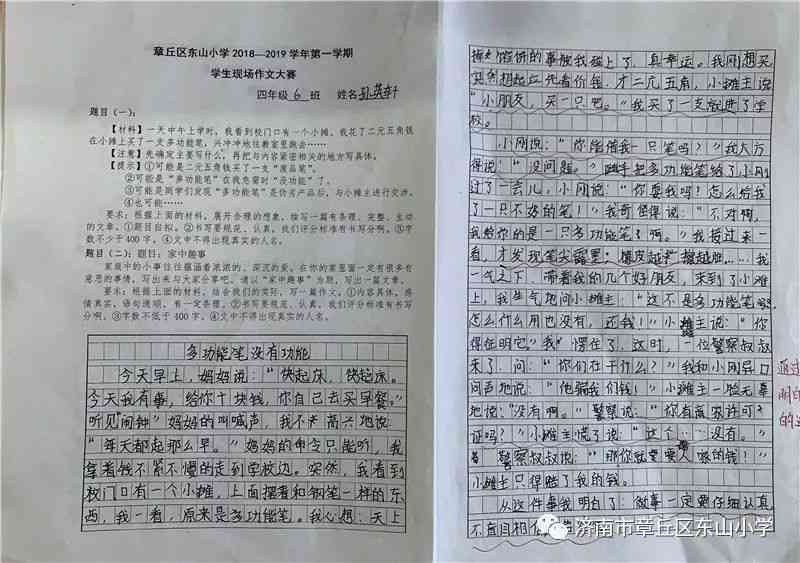 章丘区东山小学2018—2019学年第一学期
学生现场作文大赛
四年级 6 班 姓名
题目（一）：
【材料】一天中午上学时，我看到校门口有一个小摊。我花了二元五角钱
在小摊上买了一支多功能笔，兴冲冲地往教室里跑去……
【注意】先确定主要写什么，再把与内容紧密相关的地方写具体。
【提示】①可能是二元五角钱买了一支“废品笔”。
②可能是“多功能笔”在我急需时“没功能”了。
③可能是同学们发现“多功能笔”是伪劣产品后，与小摊主进行交涉。
④也可能……
要求：根据上面的材料，展开合理的想象，续写一篇有条理、完整、生动
的文章。①题目自拟。②书写要规范、认真，我们评分标准有书写分啊。③字
数不少于400字。④文中不得出现真实的人名。
题目（二）：题目：家中趣事
家庭中的小事往往蕴涵着浓浓的、深沉的爱。在你的家里面一定有很多有
意思的事情，写出来与大家分享吧。请以“家中趣事”为题，写出一篇文章。
要求：根据上面的材料，结合我们的实际，写一篇作文。①内容具体，感
情真实，语句通顺，有一定条理。②书写要规范、认真，我们评分标准有书写
分啊。③字数不低于400字。④文中不得出现真实的人名。
多功能笔没有功能
今天早上，妈妈说：“快起床，快起床。
今天我有事，给你十块钱，你自己去买早餐。”
听见“闹钟”妈妈的叫喊声，我不高兴地说：
“每天都起那么早。”妈妈的命令只能听，我
拿着钱不紧不慢的走到学校边。突然，我看到
校门口有一个小摊，上面摆着和钢笔一样的东
西，我一看，原来是多功能笔。我心想：天上
掉馅饼的事被我碰上了，真幸运。我刚想买
想起应先看价钱，才二元五角，小摊主说
“小朋友，买一只吧。”我买了一支就进了学
校。
小刚说：“你能借我一只笔吗？”我大方
得说：“没问题。”随手把多功能笔给了小刚
过了一会儿，小刚说：“你耍我吗！怎么给我
了一只不好的笔！”我奇怪得说：“不对啊，
我给你的是一只多功能笔啊。”我接过来一
看，才发现笔尖露墨，橡皮越擦越脏……，我
一气之下，带着我的几个好朋友，来到了小摊
上，我生气地问小摊主：“这不是多功能笔吗？
怎么什么用也没有，还我钱！”小摊主说：“你
得证明它。”我愣住了，这时，一位警察叔叔
来了，问：“你们在干什么？”我和小刚异口
同声地说：“他骗我们钱！”小摊主一脸无辜
地说：“没有啊。”警察说：“你有商家许可
证吗？”小摊主慌了说：“这个……没有。”
警察叔叔说：“那你就要人家的钱！”
小摊主只得赔了我的钱。
从这件事我明白了：做事一定要仔细认真
不盲目相信
通过
的
济南市章丘区东山小学